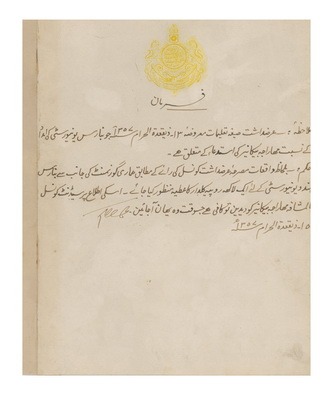 فرمان
ملاحظہ :- عرضداشت صیغۂ تعلیمات معروضہ ۱۳۔ ذیقعدۃ الحرام ۱۳۵۷ھ جو بنارس یونیورسٹی کی امداد
کے نسبت مہاراجہ بیکانیر کی استدعاء کے متعلق ہے۔
حکم :- بلحاظ واقعات مصرحہ عرضداشت کونسل کی رائے کے مطابق ہماری گورنمنٹ کی جانب سے بنارس
ہندو یونیورسٹی کے لئے ایک لاکھ روپیہ کلدار کا عطیہ منظور کیا جائے۔ اسکی اطلاع پریسیڈنٹ کونسل
بالمشافہ مہاراجہ بیکانیر کو دیدیں تو کافی ہے جسوقت وہ یہاں آجائیں۔
۱۵۔ ذیقعدۃ الحرام ۱۳۵۷ھ